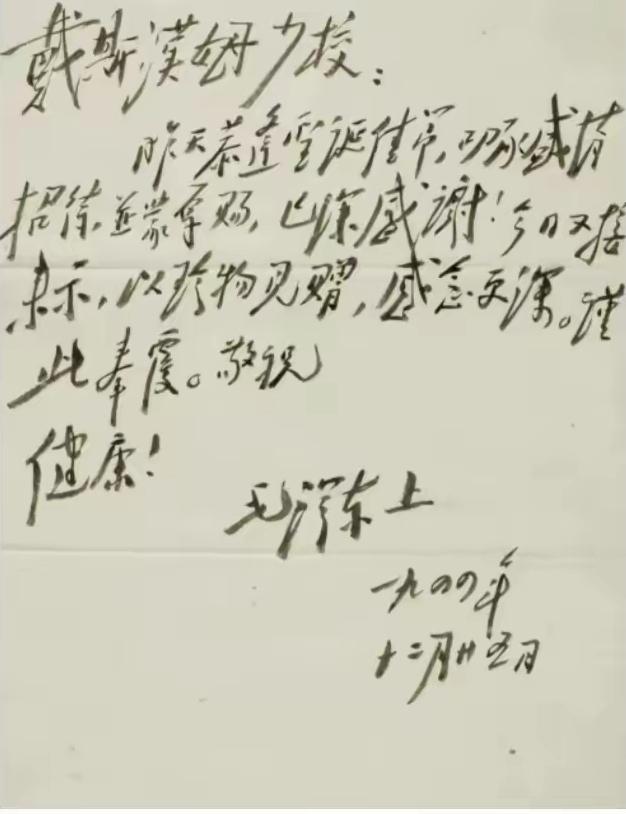 戴斯漢姆少校：
昨天恭逢聖誕佳节，叨承盛情
招待，並蒙厚赐，已深感谢！今日又接
来示，以珍物见赠，感念更深。谨
此奉覆。敬祝
健康！
毛泽东上
一九四四年
十二月廿五日